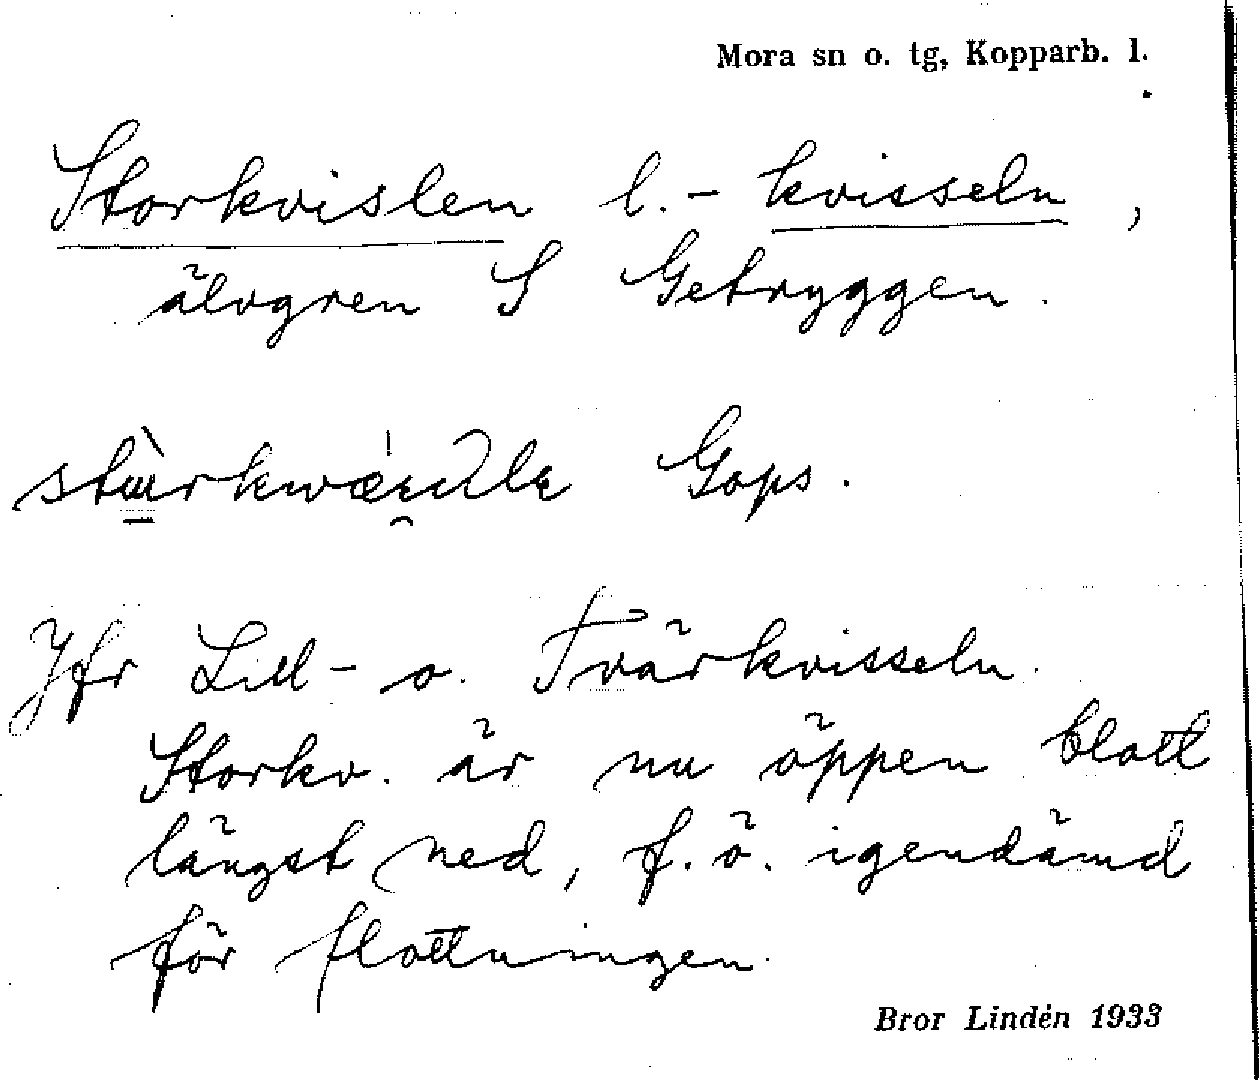 Mora sn o. tg, Kopparb. l.
Storkvislen l. - kvisseln,
älvgren S Getryggen.
Gops.
Jfr Lill- o. Tvärkvisseln.
Storkv. är nu öppen blott
längst ned, f. ö. igendämd
för flottningen.
Bror Lindén 1933